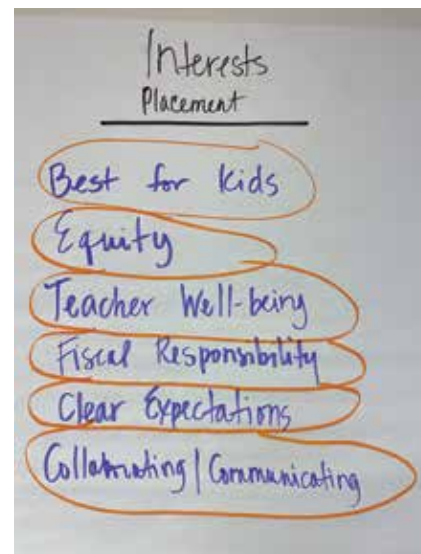 Interests
Placement
Best for kids
Equity
Teacher Well-being
Fiscal Responsibility
Clear Expectations
Collaborating | Communicating